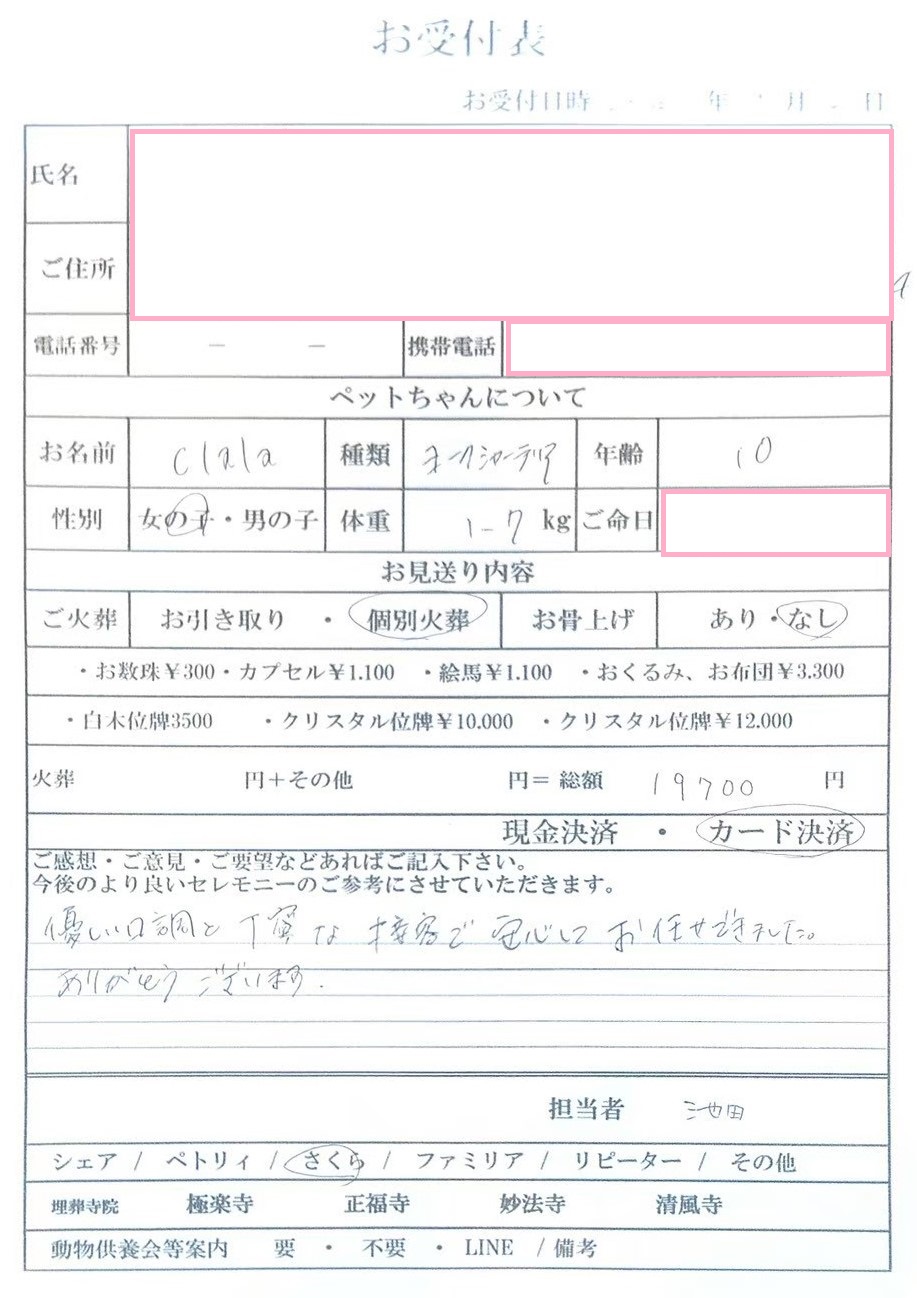 お受付表
お受付日時 年 月 日
氏名
ご住所
電話番号 － － 携帯電話
ペットちゃんについて
お名前 Clala 種類 ヨークシャーテリア 年齢 10
性別 女の子・男の子 体重 1-7 kg ご命日
お見送り内容
ご火葬 お引き取り ・ 個別火葬 お骨上げ あり・なし
・お数珠￥300・カプセル￥1.100 ・絵馬￥1.100 ・おくるみ、お布団￥3.300
・白木位牌3500 ・クリスタル位牌￥10.000 ・クリスタル位牌￥12.000
火葬 円＋その他 円＝ 総額 19700 円
現金決済 ・ カード決済
ご感想・ご意見・ご要望などあればご記入下さい。
今後のより良いセレモニーのご参考にさせていただきます。
優しい口調と丁寧な接客で安心してお任せできました。
ありがとうございます.
担当者 池田
シェア / ペトリィ / さくら / ファミリア / リピーター / その他
埋葬寺院 極楽寺 正福寺 妙法寺 清風寺
動物供養会等案内 要 ・ 不要 ・ LINE / 備考